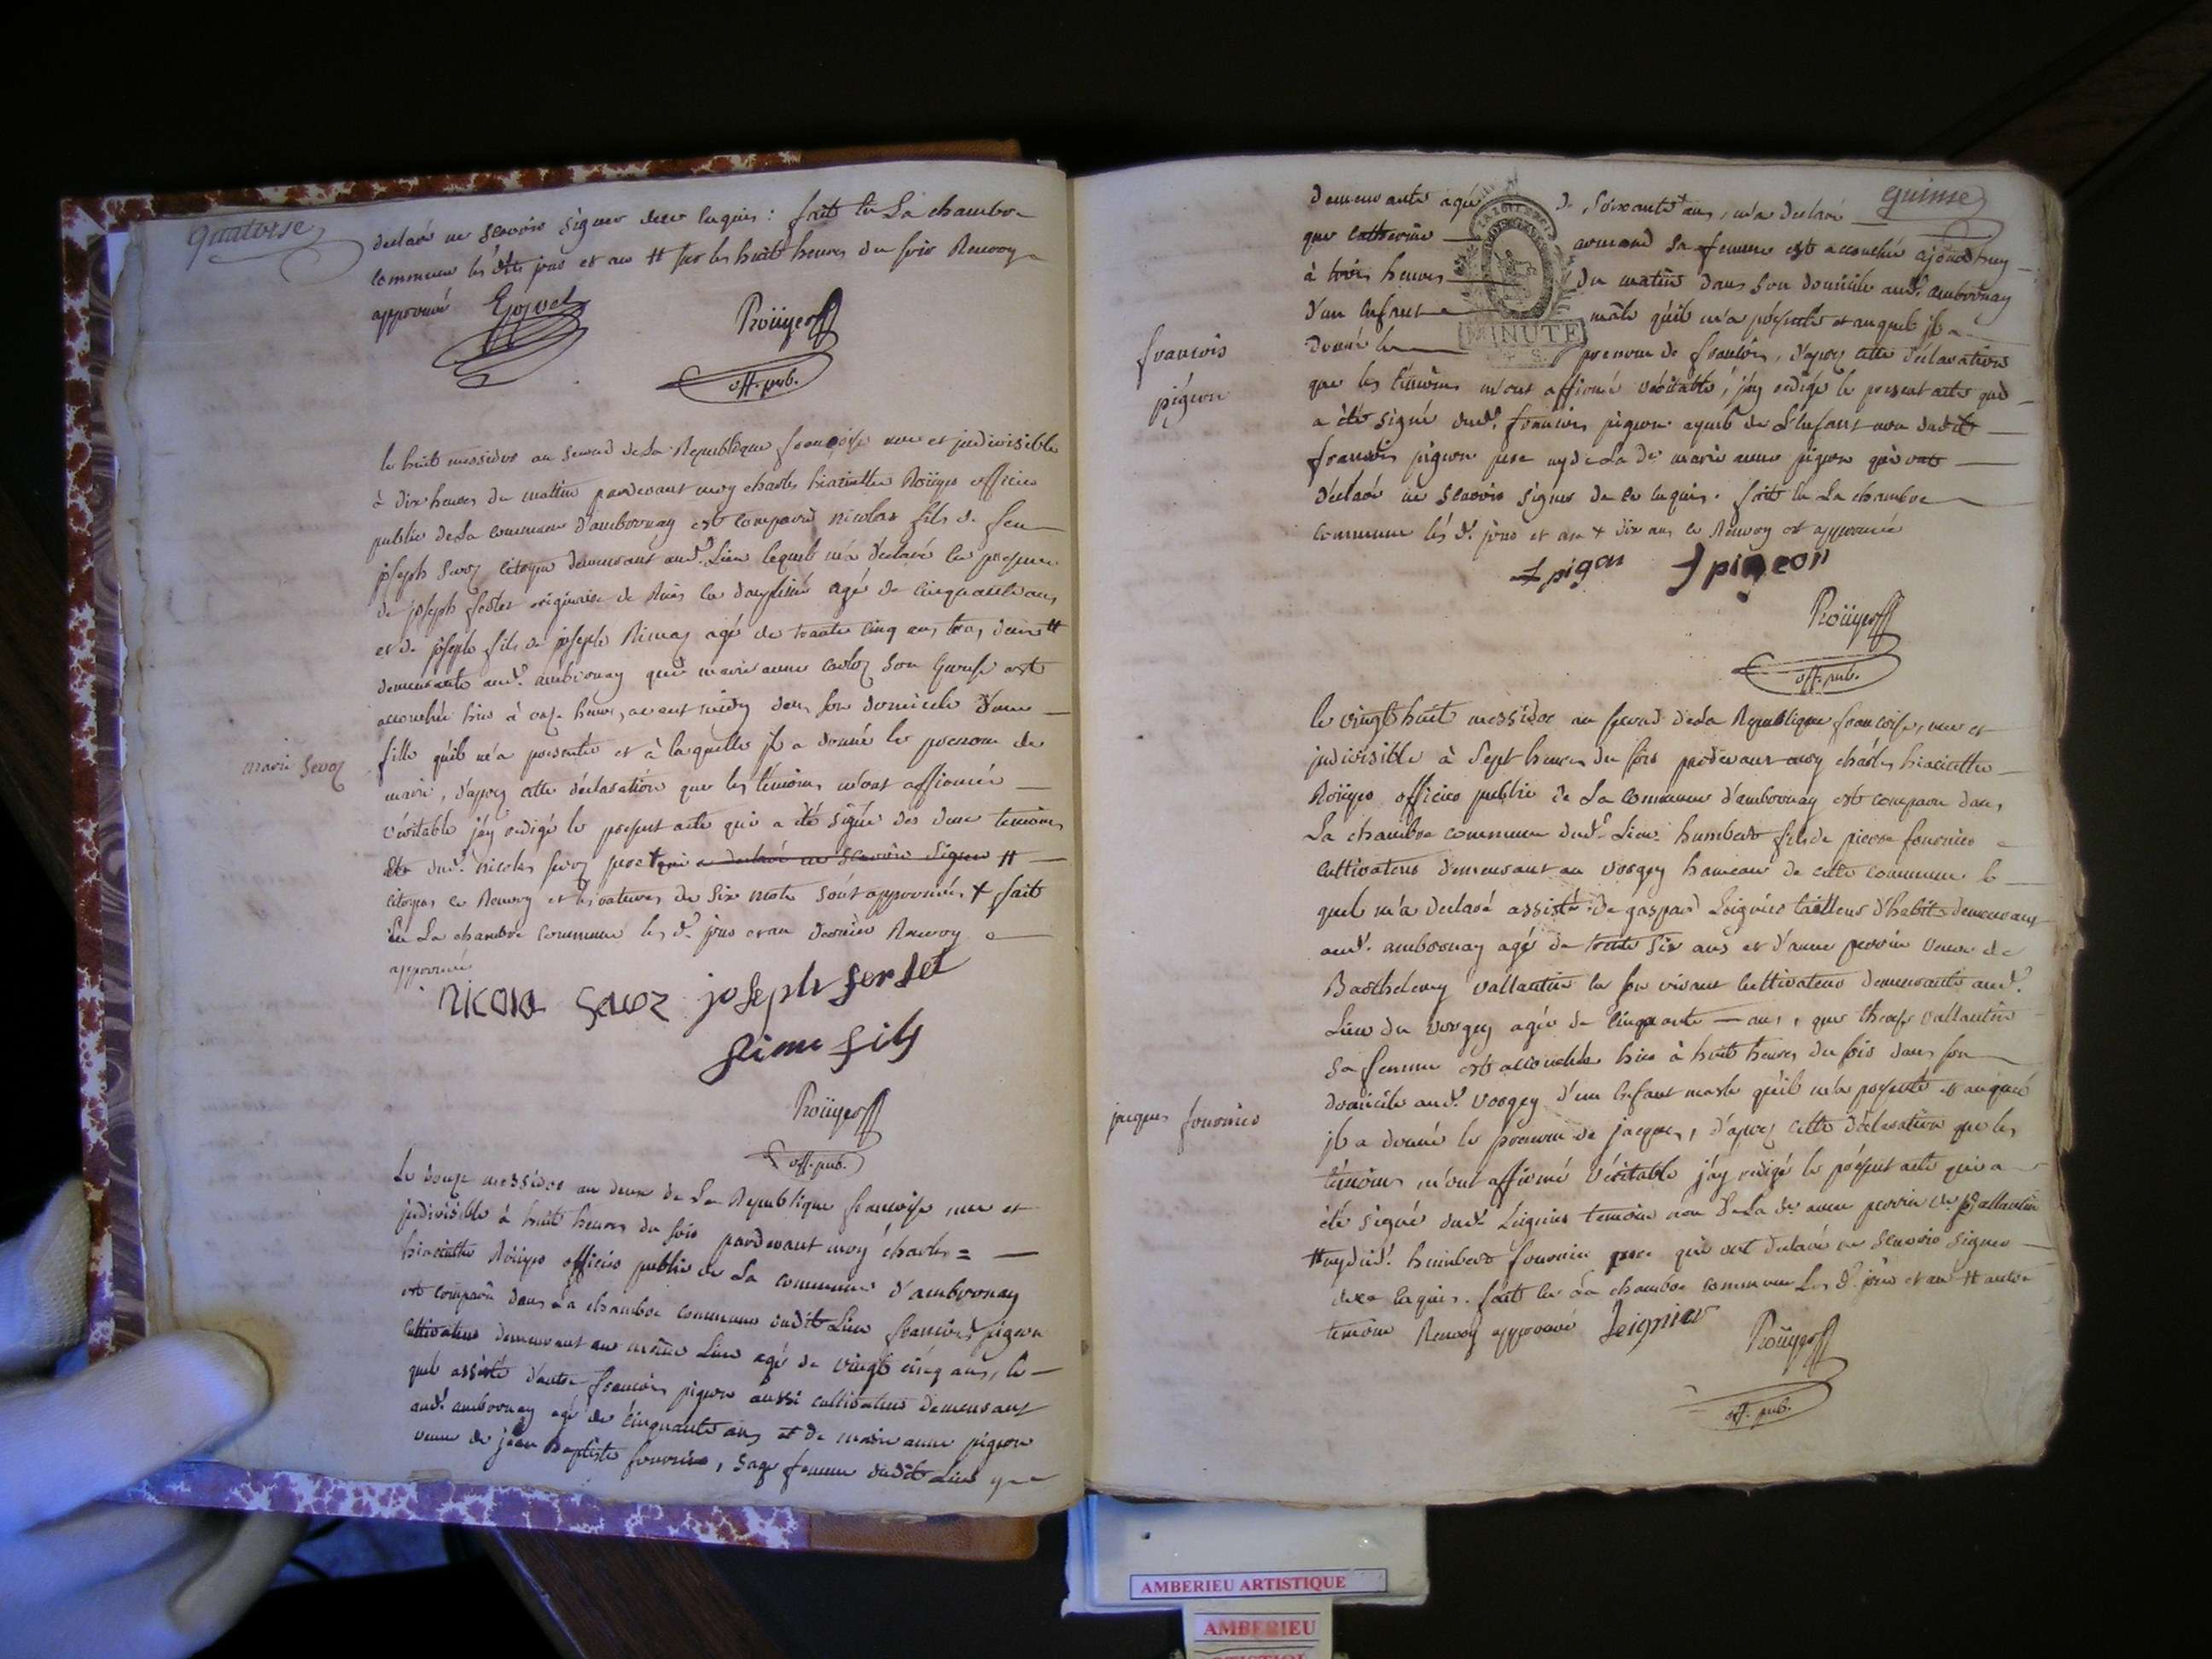 quatorse
declaré ne scavoir signer dece enquis : fait en La chambre
commune les dits jour et an # sur les huit heures du soir Renvoy
approuvé
Roüyer
off. pub.
le huit messidor an second de La Republique françoise une et indivisible
à dix heures du mattin pardevant moy charles hiacinthe Roüyer officier
public de La commune d'ambronay est comparu nicolas fils de feu
joseph Savoz citoyen demeurant aud. Lieu lequel m'a déclaré en presence
de joseph originaire de en dauphiné agé de cinquante ans
et de joseph fils de joseph agé de trante cinq ans tous deux #
demeurants aud. ambronay que marie anne son epouse est
accouchée hier à onze heures avant midy dans son domicile d'une
fille qu'il m'a presentée et à laquelle jl a donné le prenom de
marie Savoz
marie, d'aprez cette déclaration que les témoins m'ont affirmée
véritable j'ay redigé le present acte qui a été signé des deux temoins
dud. nicolas Savoz pere + qui a declaré ne scavoir signer #
citoyens ce Renvoy et les ratures de six mots sont approuvés + fait
en La chambre commune les d. jour et an dernier Renvoy
approuvé
nicola Savoz joseph
fils
Roüyer
off. pub.
Le douze messidor an deux de La Republique françoise une et
jndivisible à huit heures du soir pardevant moy charles =
hiacinthe Roüyer officier public de La commune d'ambronay
est comparu dans La chambre commune dudit Lieu francois pigeon
cultivateur demeurant au même Lieu agé de vingt cinq ans, le
quel assisté d'autre francois pigeon aussi cultivateur demeurant
aud. ambronay agé de cinquante ans et de marie anne pigeon
veuve de jean Baptiste fournier, sage femme dudit Lieu y
quinse
demeurante agée de soixante ans, m'a declaré
que catherine armand sa femme est accouchée ajourdhuy
à trois heures du matin dans son domicile aud. ambronay
d'un enfant mâle qu'il m'a présenté et auquel jl a
MINUTE
francois
pigeon
donné le prenom de francois, d'aprez cette déclaration
que les témoins m'ont affirmé véritable, j'ay redigé le present acte qui
a été signé dud. francois pigeon ayeul de L'enfant non dudit
francois pigeon pere ny de La de marie anne pigeon qui ont
déclaré ne scavoir signer de ce enquis. fait en La chambre
commune lés d. jour et an + dix ans ce Renvoy est approuvé
f pigon f pigeon
Roüyer
off. pub.
le vingt huit messidor an second de La Republique francoise, une et
jndivisible à sept heures du soir pardevant moy charles hiacinthe
Roüyer officier public de La commune d'ambronay est comparu dans
La chambre commune dud. Lieu humbert fils de pierre fournier
cultivateur demeurant au vorgey hameau de cette commune le
quel m'a declaré assisté de gaspard Leignier tailleur d'habits demeurant
aud. ambronay agé de trente six ans et d'anne perrin veuve de
Barthelemy vallantin en son vivant cultivateur demeurante aud.
Lieu du vorgey agée de cinquante — ans, que vallantin
sa femme est accouchée hier à huit heures du soir dans son
domicile aud. vorgey d'un enfant masle qu'il m'a présenté et auquel
jacques fournier
jl a donné le prenom de jacques, d'aprez cette déclaration que les
témoins m'ont affirmé véritable j'ay redigé le présent acte qui a
été signé dud. Leignier temoin non de La de anne perrin ve. vallantin
# ny dud. humbert fournier pere qui ont declaré ne scavoir signer
dece enquis. fait en La chambre commune Les d. jour et an # autre
temoin Renvoy approuvé Leignier
Roüyer
off. pub.
AMBERIEU ARTISTIQUE
AMBERIEU
ARTISTIQUE